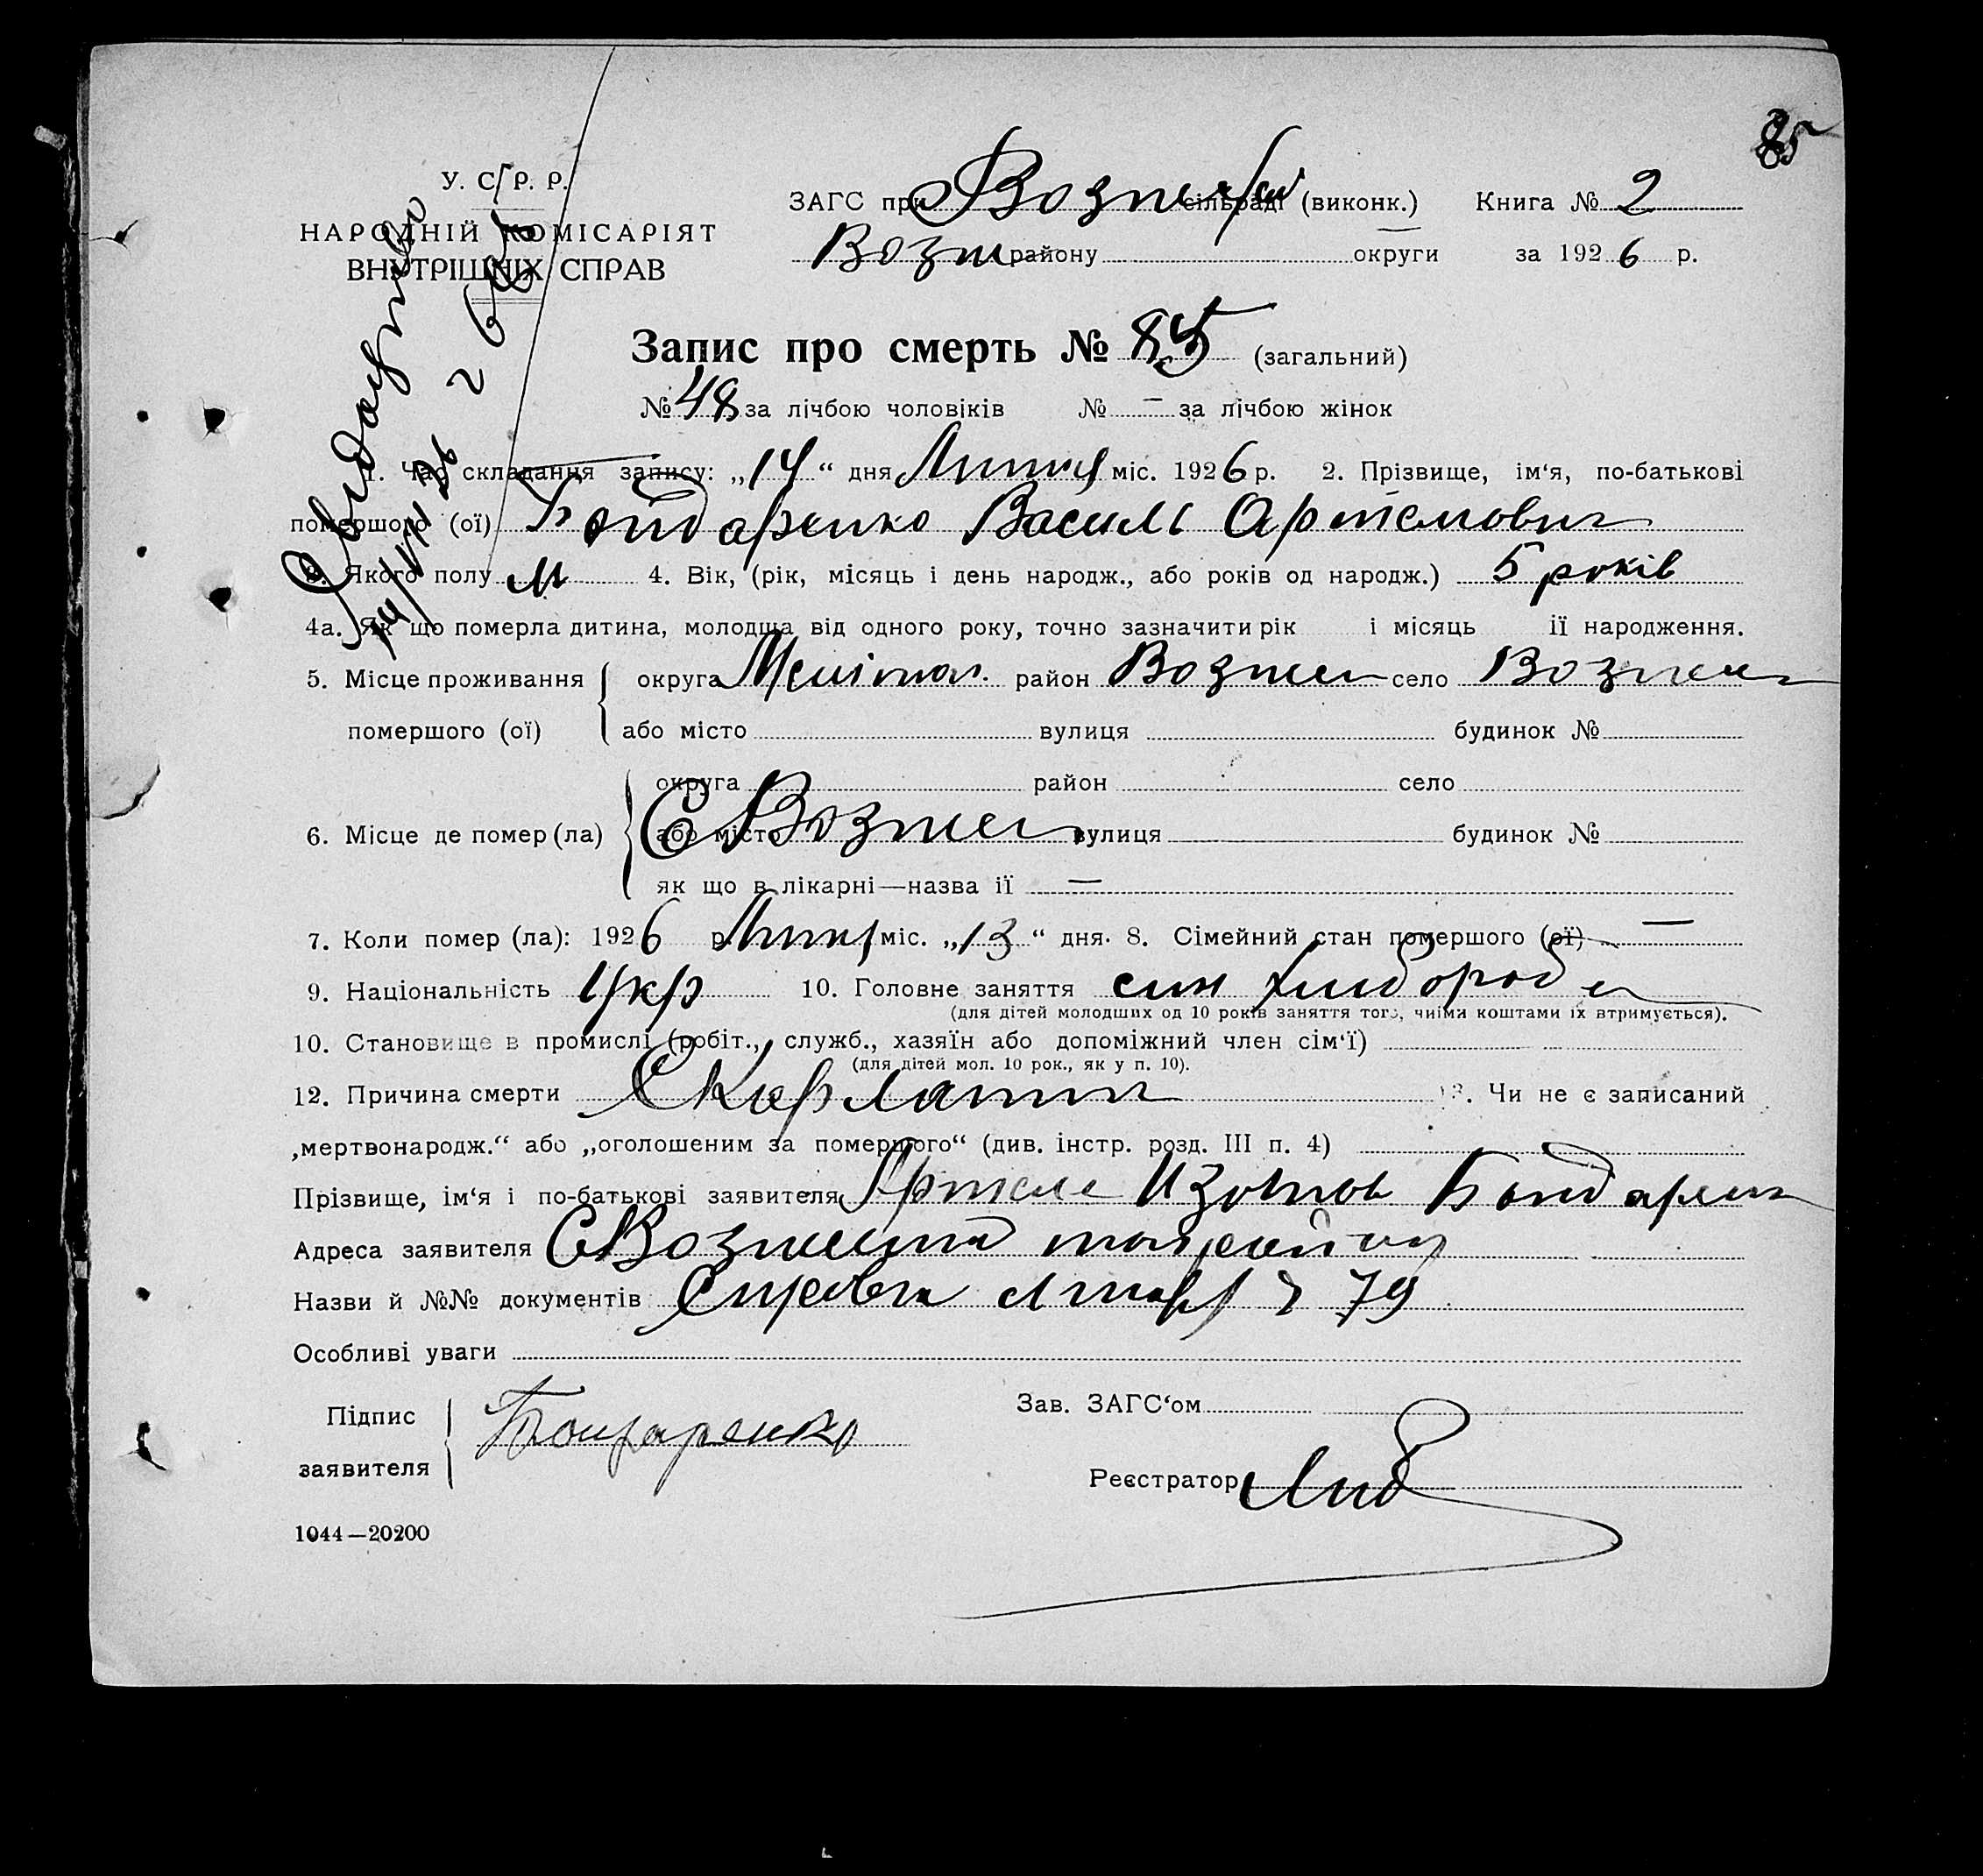 85
У. С. Р. Р.
НАРОДНІЙ КОМІСАРІЯТ
ВНУТРІШНІХ СПРАВ
ЗАГС при сільраді (виконк.) Книга № 2
Возн району округи за 1926 р.
Запис про смерть № 85 (загальний)
№ 48 за лічбою чоловіків № — за лічбою жінок
1. Час складання запису: „14“ дня Липня міс. 1926 р. 2. Прізвище, ім‘я, по-батькові
помершого (ої) Бондаренко Василь Артемович
3. Якого полу М 4. Вік, (рік, місяць і день народж., або років од народж.) 5 років
4а. Як що померла дитина, молодша від одного року, точно зазначити рік і місяць ії народження.
5. Місце проживання округа Меліто. район Вознесен село Вознесен
помершого (ої) або місто вулиця будинок №
округа район село
6. Місце де помер (ла) або місто С Вознесен вулиця будинок №
як що в лікарні—назва ії —
7. Коли помер (ла): 1926 р. Липня міс. „13“ дня. 8. Сімейний стан помершого (ої) —
9. Національність Укр 10. Головне заняття син хлибороба
(для дітей молодших од 10 років заняття того, чиїми коштами їх втримується).
10. Становище в промислі (робіт., служб., хазяїн або допоміжний член сім‘ї)
(для дітей мол. 10 рок., як у п. 10).
12. Причина смерти Скарлатин 13. Чи не є записаний
„мертвонародж.“ або „оголошеним за помершого“ (див. інстр. розд. III п. 4)
Прізвище, ім‘я і по-батькові заявителя Артем Изотов Бондарен
Адреса заявителя С Вознесенка
Назви й №№ документів Справка 79
Особливі уваги
Підпис Бондаренко
заявителя
Зав. ЗАГС‘ом
Реєстратор
1044—20200
Свидоцтво
14/VII 26